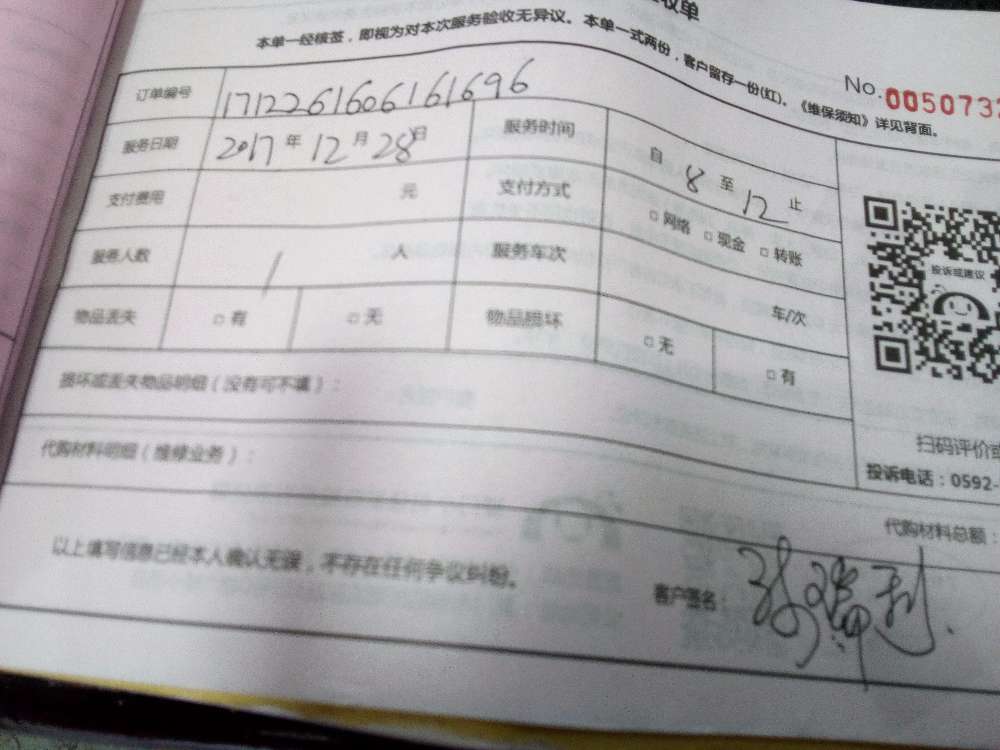 收单
本单一经核签，即视为对本次服务验收无异议。本单一式两份，客户留存一份(红)。《维保须知》详见背面。
No.0050732
订单编号 1712261606161696
服务日期 2017 年 12 月 28 日 服务时间 自 8 至 12 止
支付费用 元 支付方式 □ 网络 □ 现金 □ 转账
服务人数 1 人 服务车次 车/次
物品丢失 □ 有 □ 无 物品损坏 □ 无 □ 有
投诉或建议
损坏或丢失物品明细（没有可不填）：
扫码评价或
投诉电话：0592-
代购材料明细（维修业务）：
代购材料总额：
以上填写信息已经本人确认无误，不存在任何争议纠纷。
客户签名：